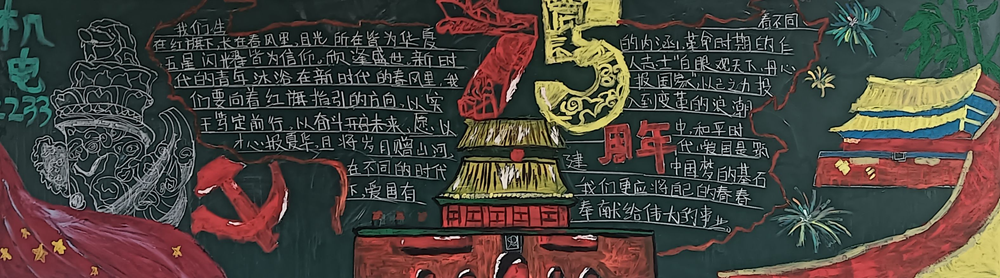 机电
2233
我们生
在红旗下,长在春风里,目光所在皆为华夏
五星闪耀皆为信仰。欣逢盛世,新时
代的青年沐浴在新时代的春风里,我
们要向着红旗指引的方向,以
定前行,以奋斗开未来,愿以
寸心报爱华,且将岁月赠山河
在不同的时代
爱国有
75
周年
建
看不同
的内涵,革命时期的仁
人志士"白眼观天下,丹心
报国家"以己之力投
入到变革的浪潮
中,和平时
代,爱国是筑
中国梦的基石
我们更应将自己的青春
奉献给伟大事业。